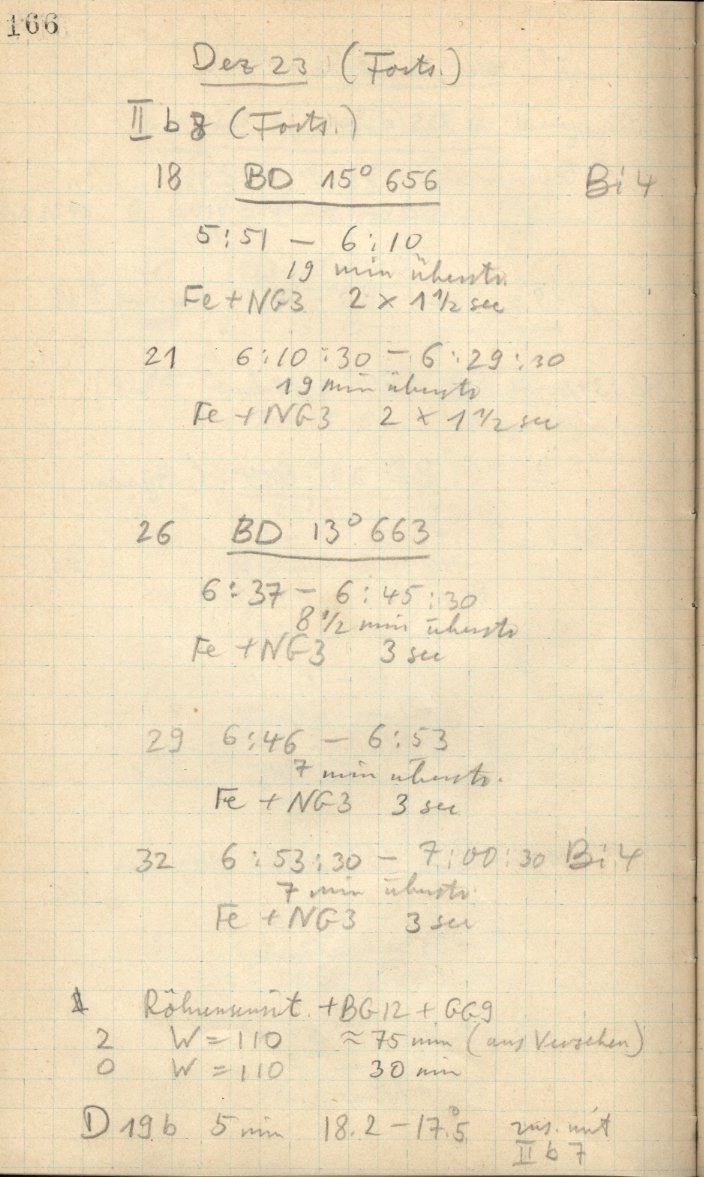 166
Dez 23 (Forts.)
II b 8 (Forts.)
18 BD 15° 656 Bi 4
5:51 – 6:10
19 min überstr.
Fe + NG3 2 × 1 1/2 sec
21 6:10:30 – 6:29:30
19 min überstr
Fe + NG3 2 × 1 1/2 sec
26 BD 13° 663
6:37 – 6:45:30
8 1/2 min überstr
Fe + NG3 3 sec
29 6:46 – 6:53
7 min überstr.
Fe + NG3 3 sec
32 6:53:30 – 7:00:30 Bi 4
7 min überstr.
Fe + NG3 3 sec
Röhrensensit. + BG12 + GG9
2 W = 110 ≈ 75 min (aus Versehen)
0 W = 110 30 min
D 19b 5 min 18.2 – 17.°5 zus. mit
II b 7